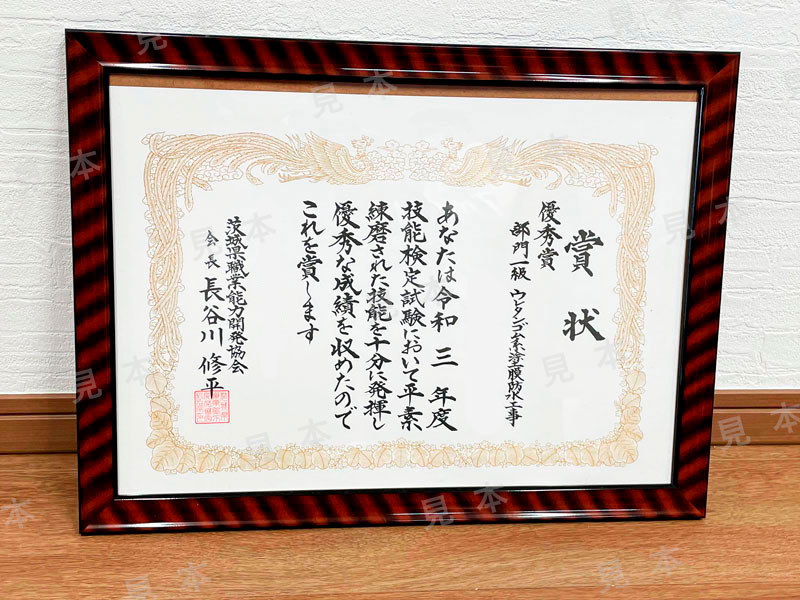 賞状
優秀賞
部門一級 ウレタンゴム系塗膜防水工事
あなたは令和三年度
技能検定試験において平素
練磨された技能を十分に発揮し
優秀な成績を収めたので
これを賞します
茨城県職業能力開発協会
会長 長谷川修平
見本
見本
見本
見本
見本
見本
見本
見本
見本
見本
見本
見本